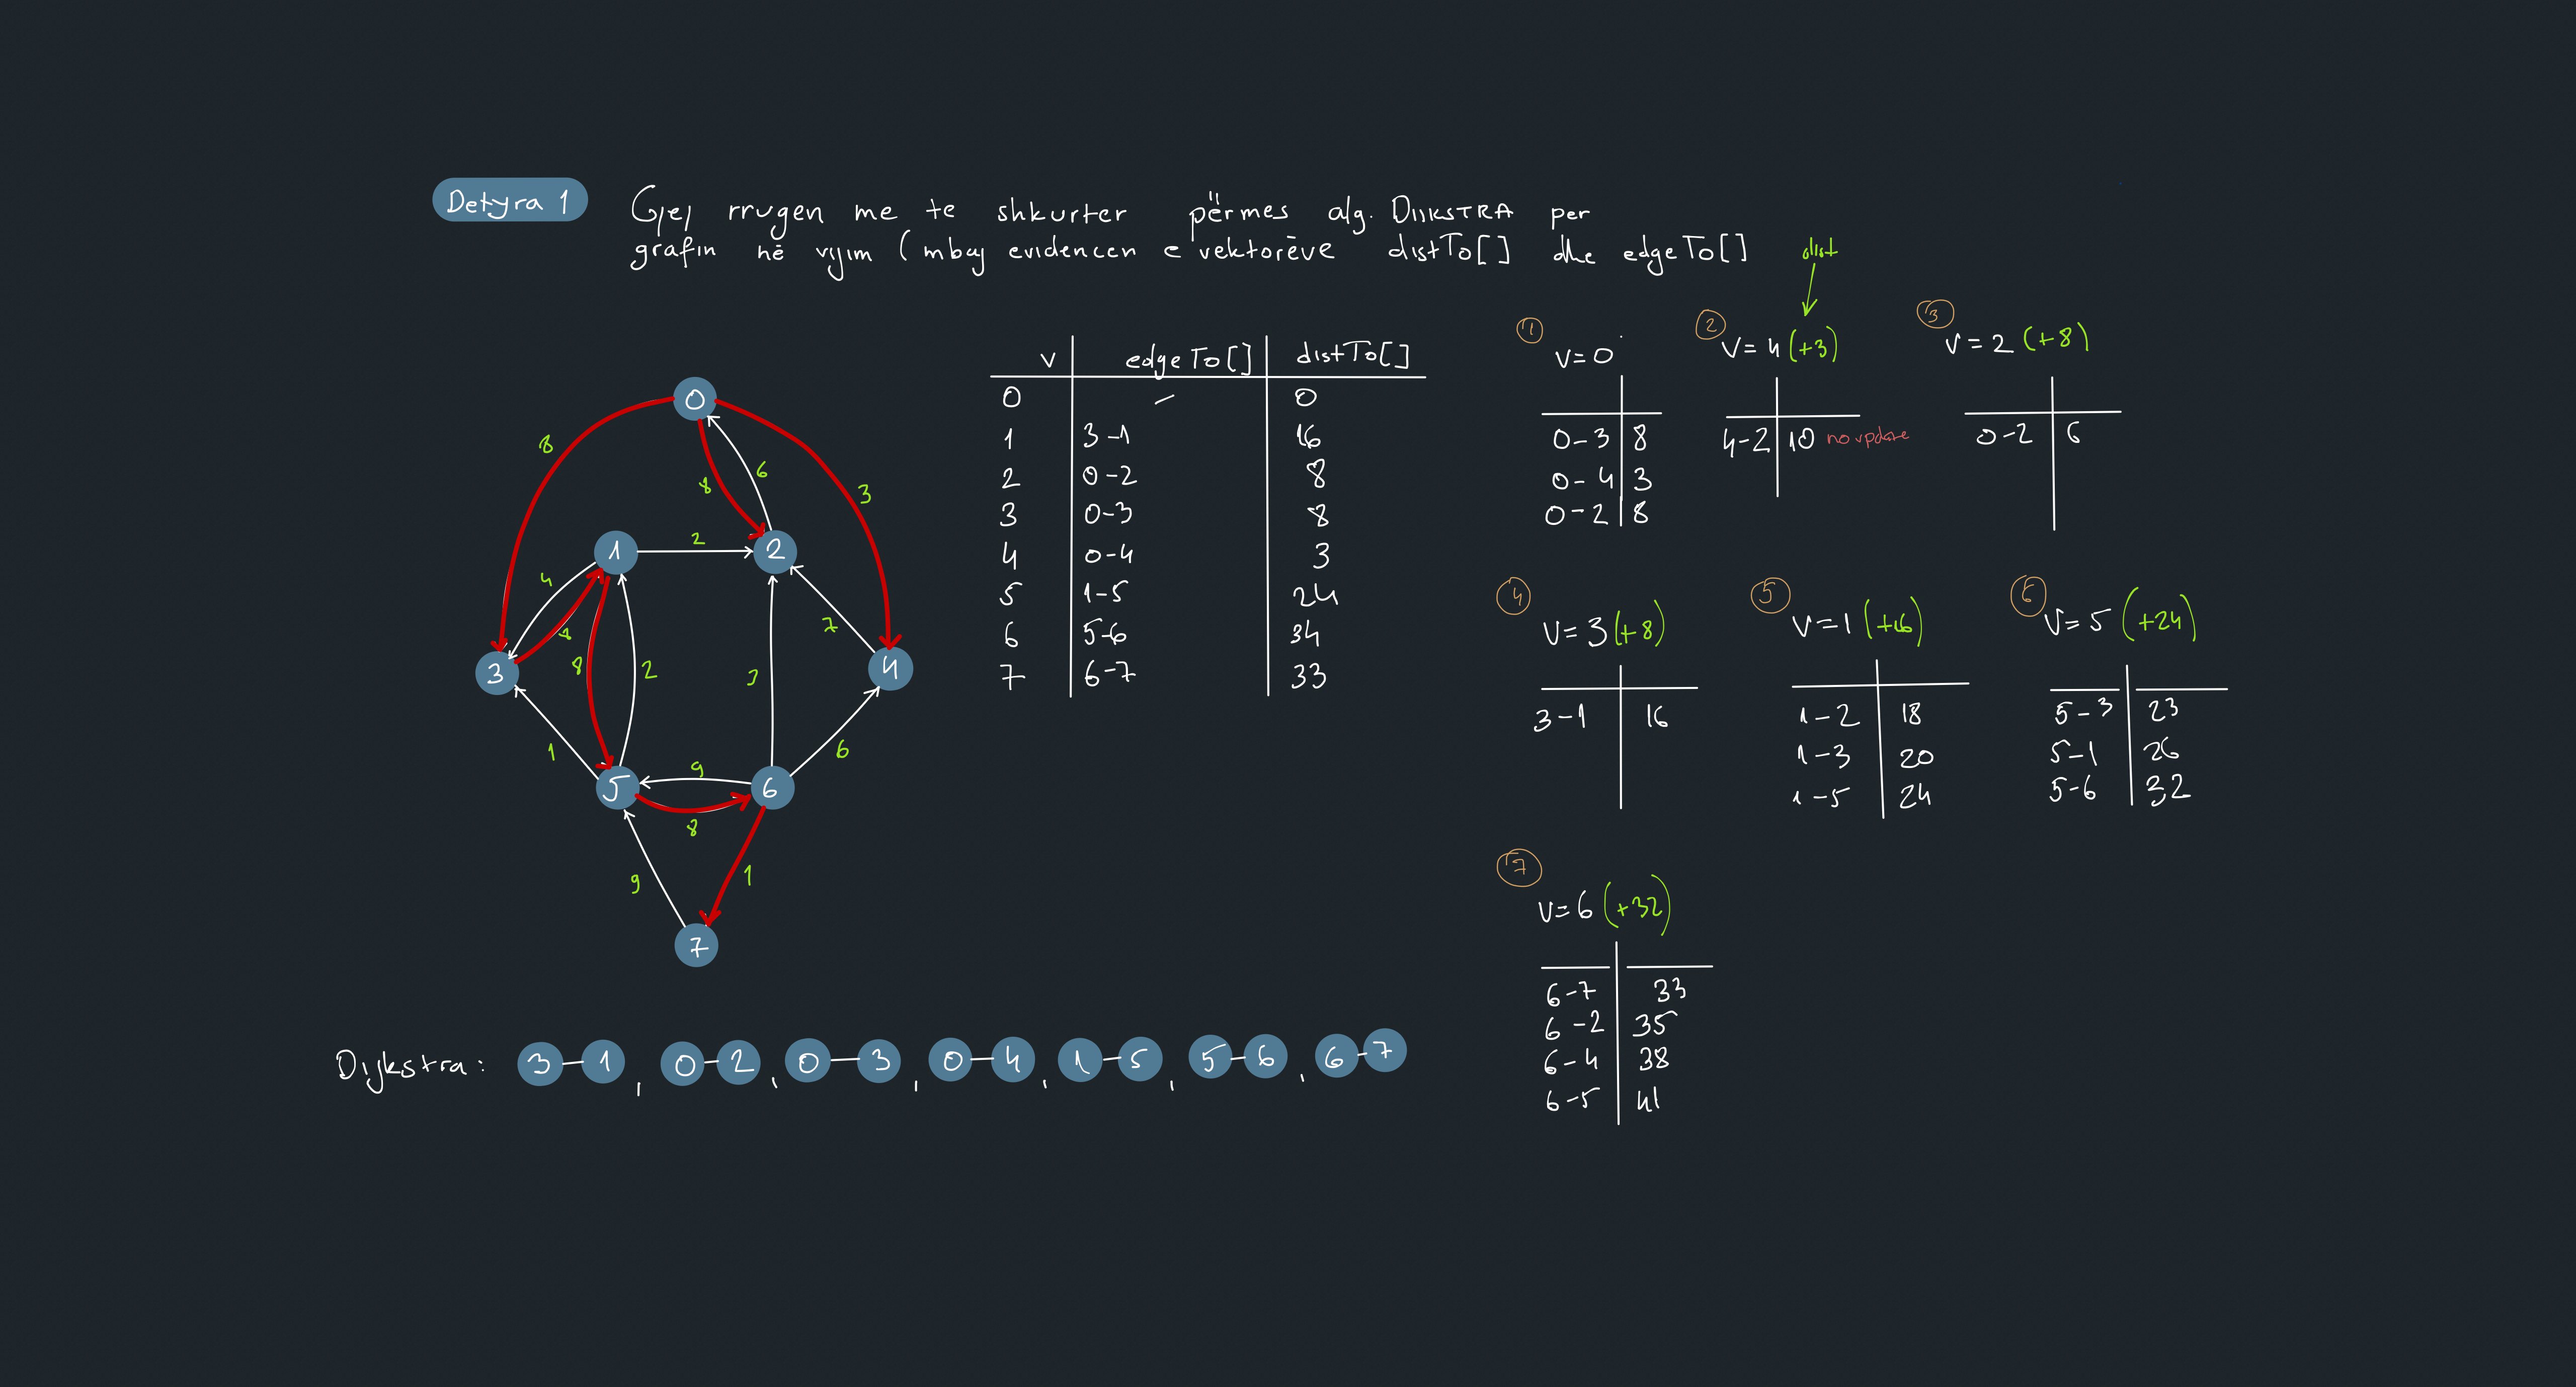 Detyra 1
Gjej rrugen me te shkurter përmes alg. DIJKSTRA per
grafin në vijim (mbaj evidencen e vektorëve distTo[] dhe edgeTo[]
dist
0
8
8
6
3
1
2
2
4
8
7
3
4
8
2
3
1
6
5
9
6
8
9
1
7
v edgeTo[] distTo[]
0 – 0
1 3-1 16
2 0-2 8
3 0-3 8
4 0-4 3
5 1-5 24
6 5-6 34
7 6-7 33
1
v=0
0-3 8
0-4 3
0-2 8
2
v=4 (+3)
4-2 10 no update
3
v=2 (+8)
0-2 6
4
v=3 (+8)
3-1 16
5
v=1 (+16)
1-2 18
1-3 20
1-5 24
6
v=5 (+24)
5-3 23
5-1 26
5-6 32
7
v=6 (+32)
6-7 33
6-2 35
6-4 38
6-5 41
Dijkstra: 3-1, 0-2, 0-3, 0-4, 1-5, 5-6, 6-7